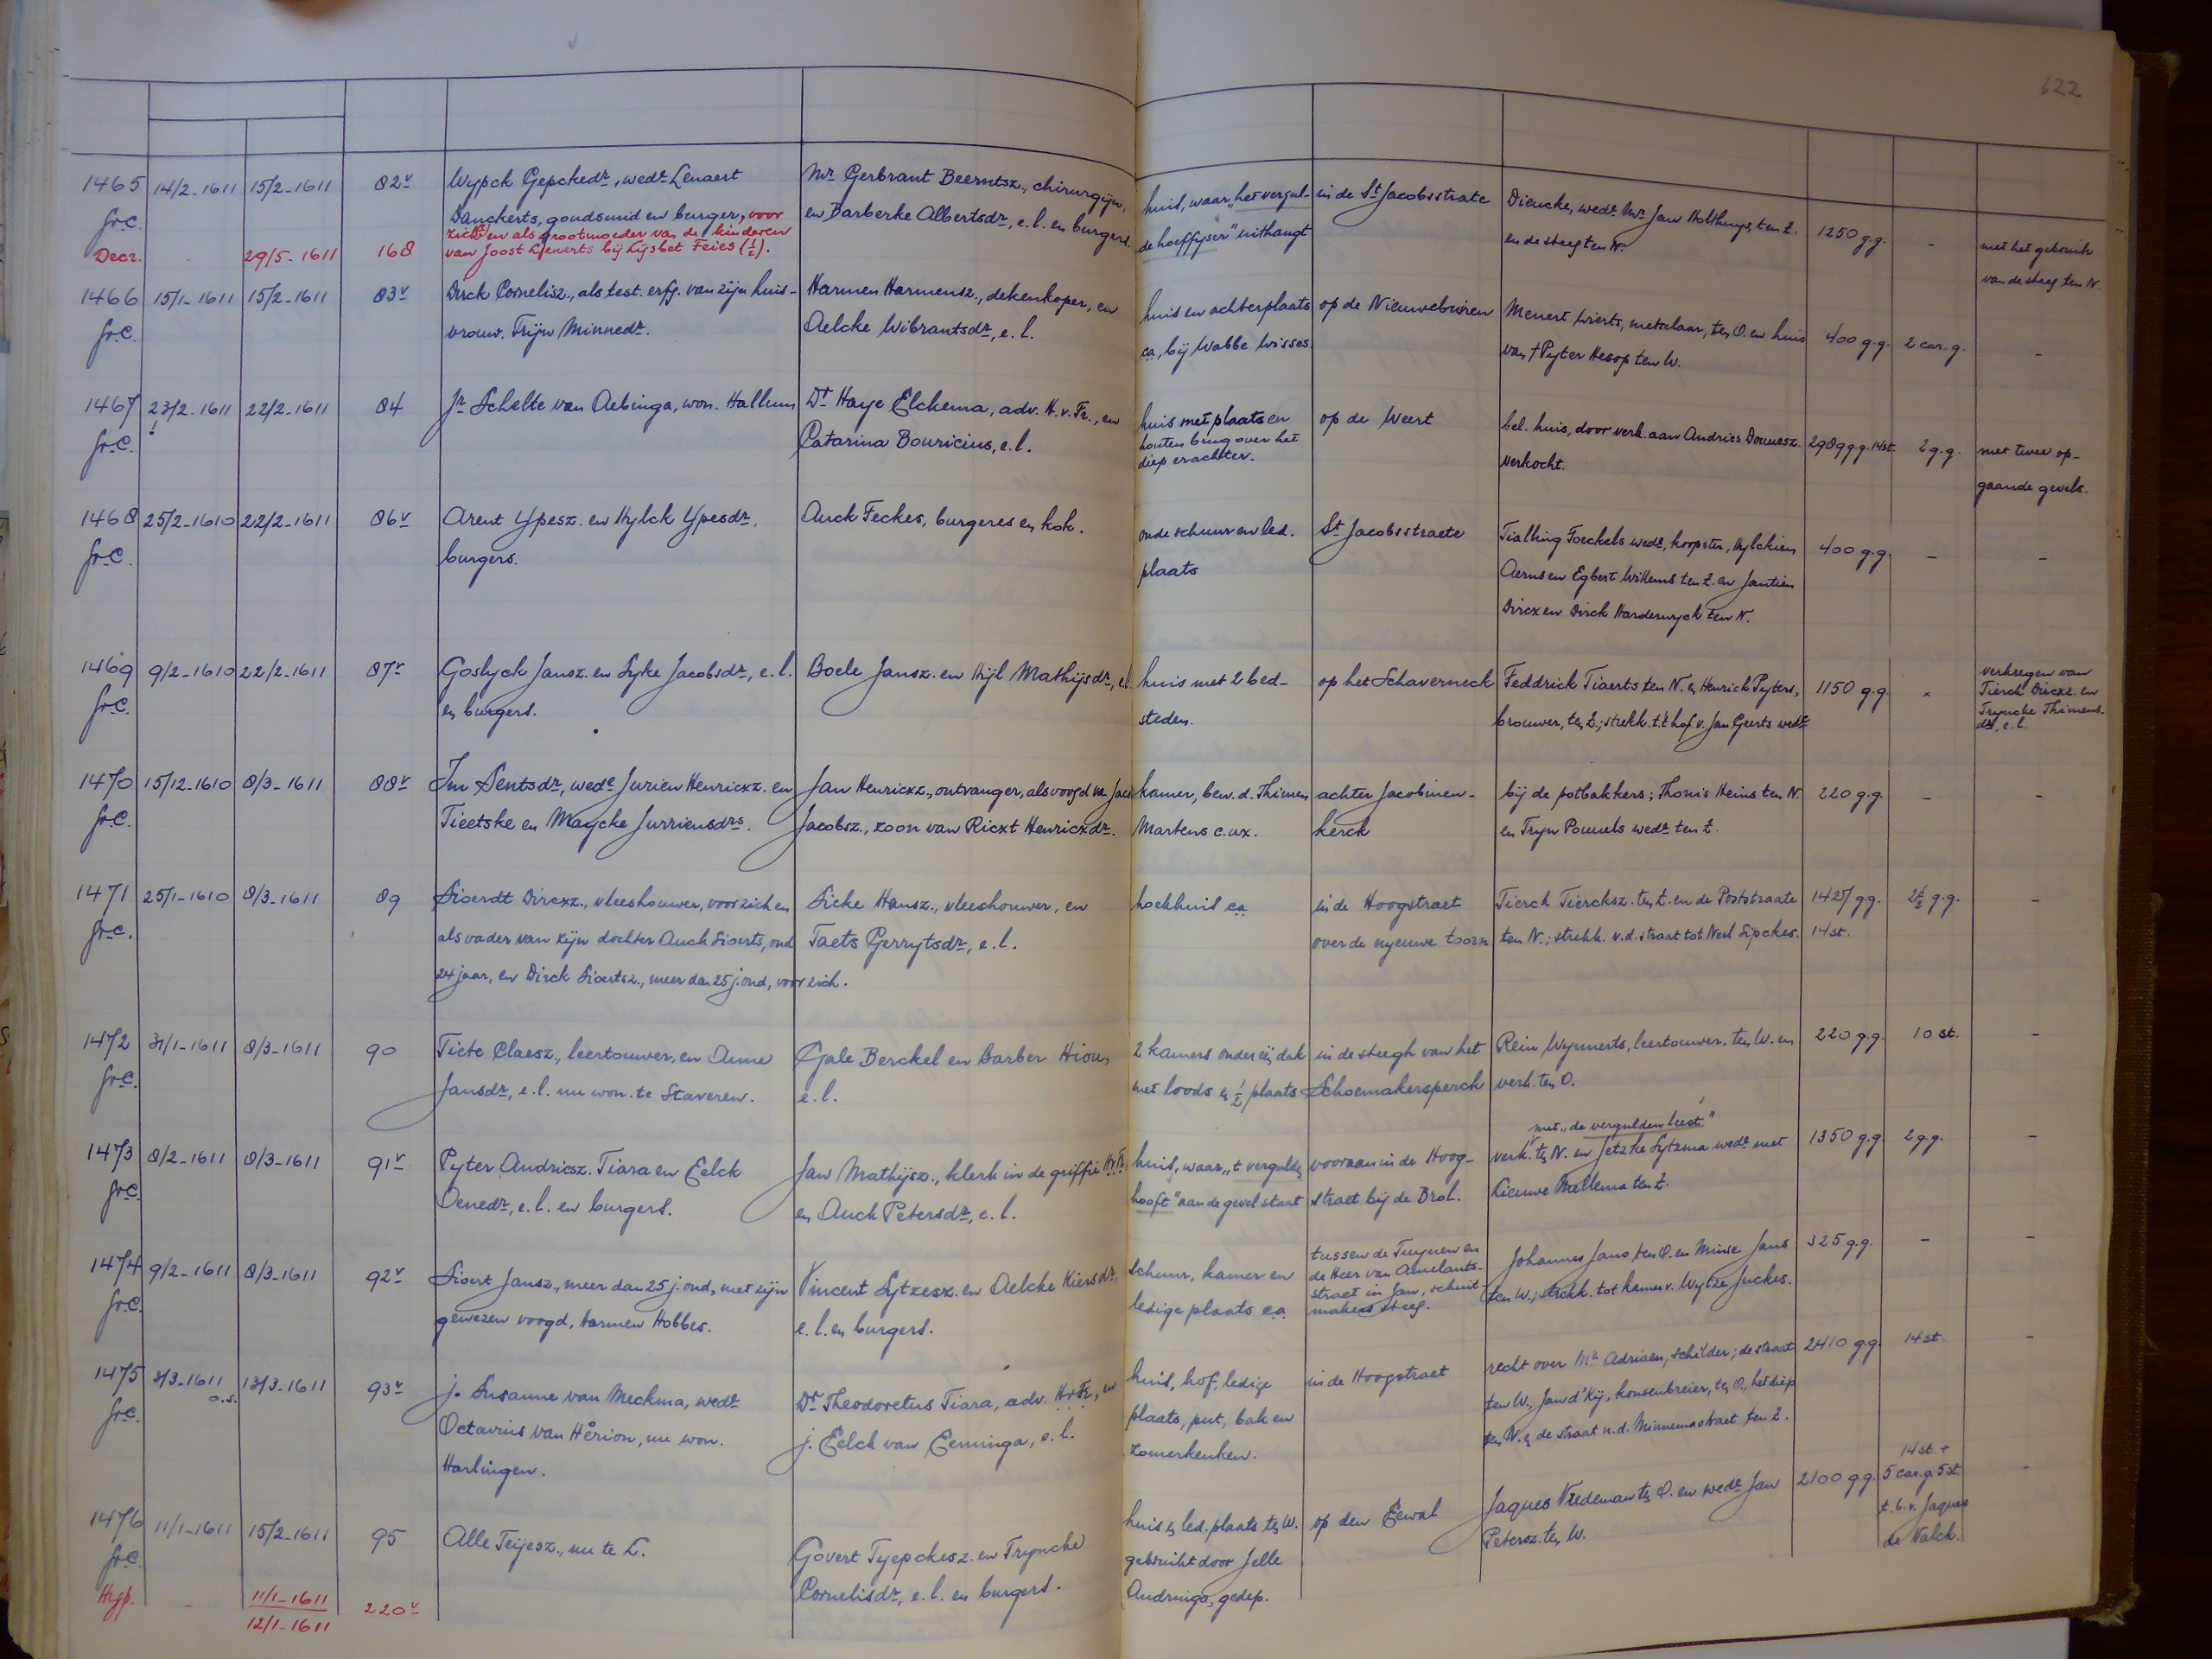 122
1465 14/2-1611 15/2-1611 82v Wypck Gepckedr, wedr Lenaert Mr Gerbrant Beerntsz., chirurgijn, huis, waar „het vergul- in de St Jacobsstrate Dieucke, wedr Mr Jan Holthuys, ten Z. 1250 g.g. - met het gebruik
gr.C. Danckerts, goudsmid en burger, voor en Barberke Albertsdr, e.l. en burgers. de hoeffyser" uithangt en de steeg ten N. van de steeg ten N.
zich en als grootmoeder van de kinderen
Decr. - 29/5-1611 168 van Joost Lenerts bij Lijsbet Feies (½).
1466 15/1-1611 15/2-1611 83v Dirck Cornelisz., als test. erfg. van zijn huis- Harmen Harmensz., dekenkoper, en huis en achterplaats op de Nieuweburen Menert Wierts, metselaar, ten O. en huis 400 g.g. 2 car.g. -
gr.C. vrouw. Trijn Minnedr. Aelcke Wibrantsdr, e.l. ca, bij Wabbe Wisses. van † Pyter Hesop ten W.
1467 23/2-1611 22/2-1611 84 Jr Schelte van Aebinga, won. Hallum Dr Haye Elckema, adv. H.v.Fr., en huis met plaats en op de Weert bel. huis, door verk. aan Andries Douwesz. 2989 g.g. 14 st. 2 g.g. met twee op-
gr.C. ! Catarina Bouricius, e.l. houten brug over het diep erachter. verkocht. gaande gevels.
1468 25/2-1610 22/2-1611 86v Arent Ypesz. en Hylck Ypesdr, Auck Feckes, burgeres en kok. oude schuur en led. St Jacobsstraete Tialling Foeckels wedr, koopster, Hylckien 400 g.g. - -
gr.C. burgers. plaats Aerns en Egbert Willems ten Z. en Jantien
Dircx en Dirck Harderwyck ten N.
1469 9/2-1610 22/2-1611 87v Goslyck Jansz. en Syke Jacobsdr, e.l. Boele Jansz. en Hijl Mathijsdr, e.l. huis met 2 bed- op het Schaverneck Feddrick Tiaerts ten N. en Henrick Pyters, 1150 g.g. - verkregen van Tierck Dircxz. en
gr.C. en burgers. steden. brouwer, ten Z.; strekk. t.t. hof v. Jan Geerts wedr Tryncke Thimens-dr, e.l.
1470 15/12-1610 8/3-1611 88v Im Sentsdr, wede Jurien Henricxz. en Jan Henricxz., ontvanger, als voogd van Jacob kamer, bew. d. Thimen achter Jacobinen- bij de potbakkers; Thonis Heins ten N. 220 g.g. - -
gr.C. Tieetske en Maycke Jurriensdrs. Jacobsz., zoon van Ricxt Henricxdr. Martens c.ux. kerck en Tryn Pouwels wedr ten Z.
1471 25/1-1610 8/3-1611 89 Sioerdt Dircxz., vleeshouwer, voor zich en Sicke Hansz., vleeshouwer, en hoekhuis ca in de Hoogstraet Tierck Tiercksz. ten Z. en de Poststraate 1427 g.g. 2½ g.g. -
gr.C. als vader van zijn dochter Auck Sioerts, oud Taets Gerrytsdr, e.l. over de nyeuwe toorn ten N.; strekk. v.d. straat tot Neel Sipckes. 14 st.
24 jaar, en Dirck Sioertsz., meer dan 25 j. oud, voor zich.
1472 31/1-1611 8/3-1611 90 Tiete Claesz., leertouwer, en Anne Gale Berckel en Barber Hiou, 2 kamers onder één dak in de steegh van het Rein Wynnerts, leertouwer, ten W. en 220 g.g. 10 st. -
gr.C. Jansdr, e.l. nu won. te Staveren. e.l. met loods en ½ plaats Schoemakersperck verk. ten O.
met „de vergulden leest"
1473 8/2-1611 8/3-1611 91v Pyter Andriesz. Tiara en Eelck Jan Mathijsz., klerk in de griffie H.v.Fr. huis, waar „t vergulde vooraan in de Hoog- verk. ten N. en Jetzke Sytzma wedr met 1350 g.g. 2 g.g. -
gr.C. Oenedr, e.l. en burgers. en Auck Petersdr, e.l. hooft" aan de gevel staat straet bij de Brol. Lieuwe Mellema ten Z.
1474 9/2-1611 8/3-1611 92v Sioert Jansz., meer dan 25 j. oud, met zijn Vincent Sytzesz. en Aelcke Kiersdr, schuur, kamer en tussen de Tuynen en de Heer van Amelants- Johannes Jans ten O. en Minse Jans 325 g.g. - -
gr.C. gewezen voogd, Harmen Hobbes. e.l. en burgers. ledige plaats ca straet in Jan, schuit-makers steeg. ten W.; strekk. tot kamer v. Wytze Juckes.
1475 3/3-1611 o.s. 13/3-1611 93v j. Susanne van Meckma, wedr Dr Theodoretus Tiara, adv. H.v.Fr., en huis, hof, ledige in de Hoogstraet recht over Mr Adriaen, schilder; de straat 2410 g.g. 14 st. -
gr.C. Octavius van Hérion, nu won. j. Eelck van Eeminga, e.l. plaats, put, bak en ten W., Jan d'Kij, kousenbreier, ten O., het diep
Harlingen. zomerkeuken. ten N. en de straat n.d. Minnemastraet ten Z.
1476 11/1-1611 15/2-1611 95 Alle Teijesz., nu te L. Govert Tyepckesz. en Tryncke huis en led. plaats ten W. op den Eewal Jaques Vredeman ten O. en wedr Jan 2100 g.g. 14 st. + 5 car.g. 5 st. -
gr.C. Cornelisdr, e.l. en burgers. gebruikt door Jelle Petersz. ten W. t.b.v. Jaques
Hyp. - 11/1-1611 220v Andringa, gedep. de Valck.
12/1-1611